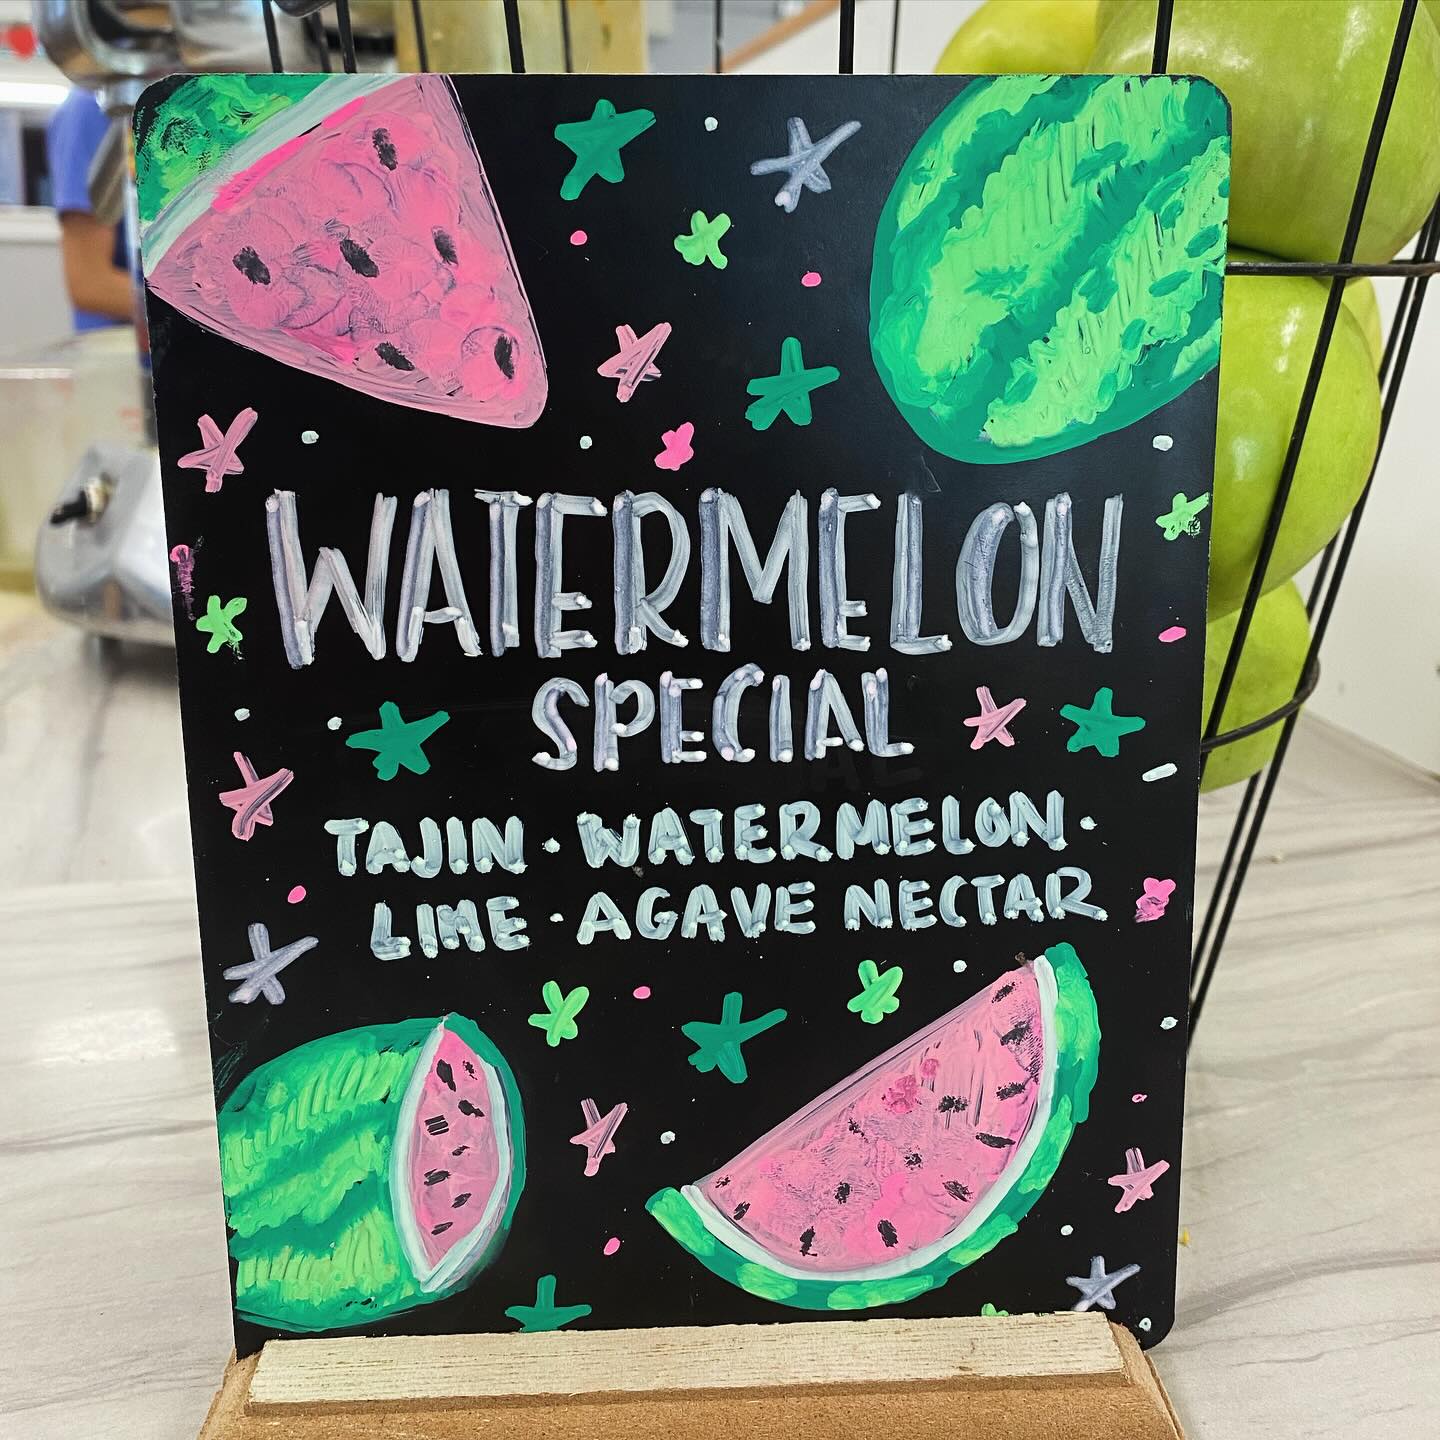 WATERMELON
SPECIAL
TAJIN · WATERMELON ·
LIME · AGAVE NECTAR